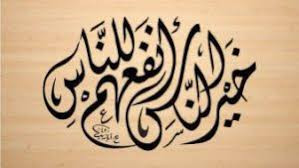 خَيْرُ النَّاسِ أَنْفَعُهُمْ لِلنَّاسِ